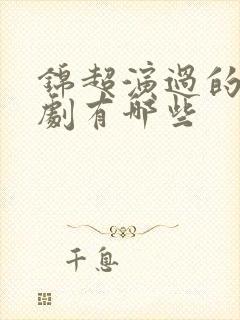 錦超演過的
劇有哪些
千息